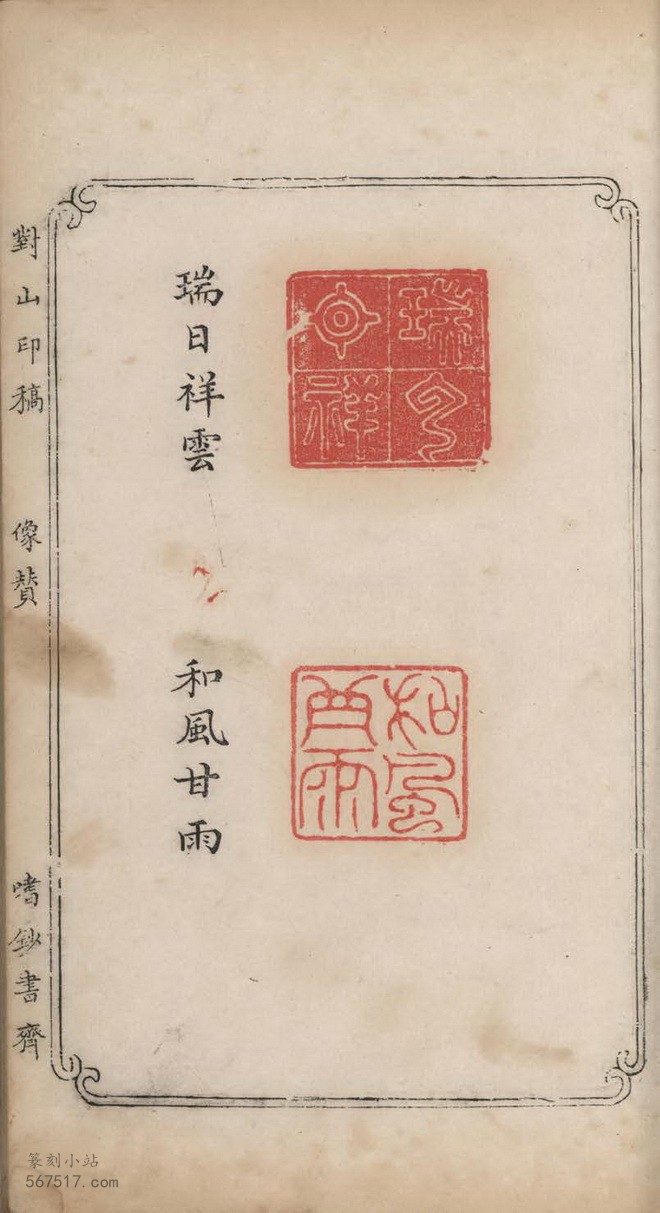 瑞云
日祥
和風
甘雨
瑞日祥雲
和風甘雨
對山印稿
像賛
嗜鈔書齊
篆刻小站
567517.com